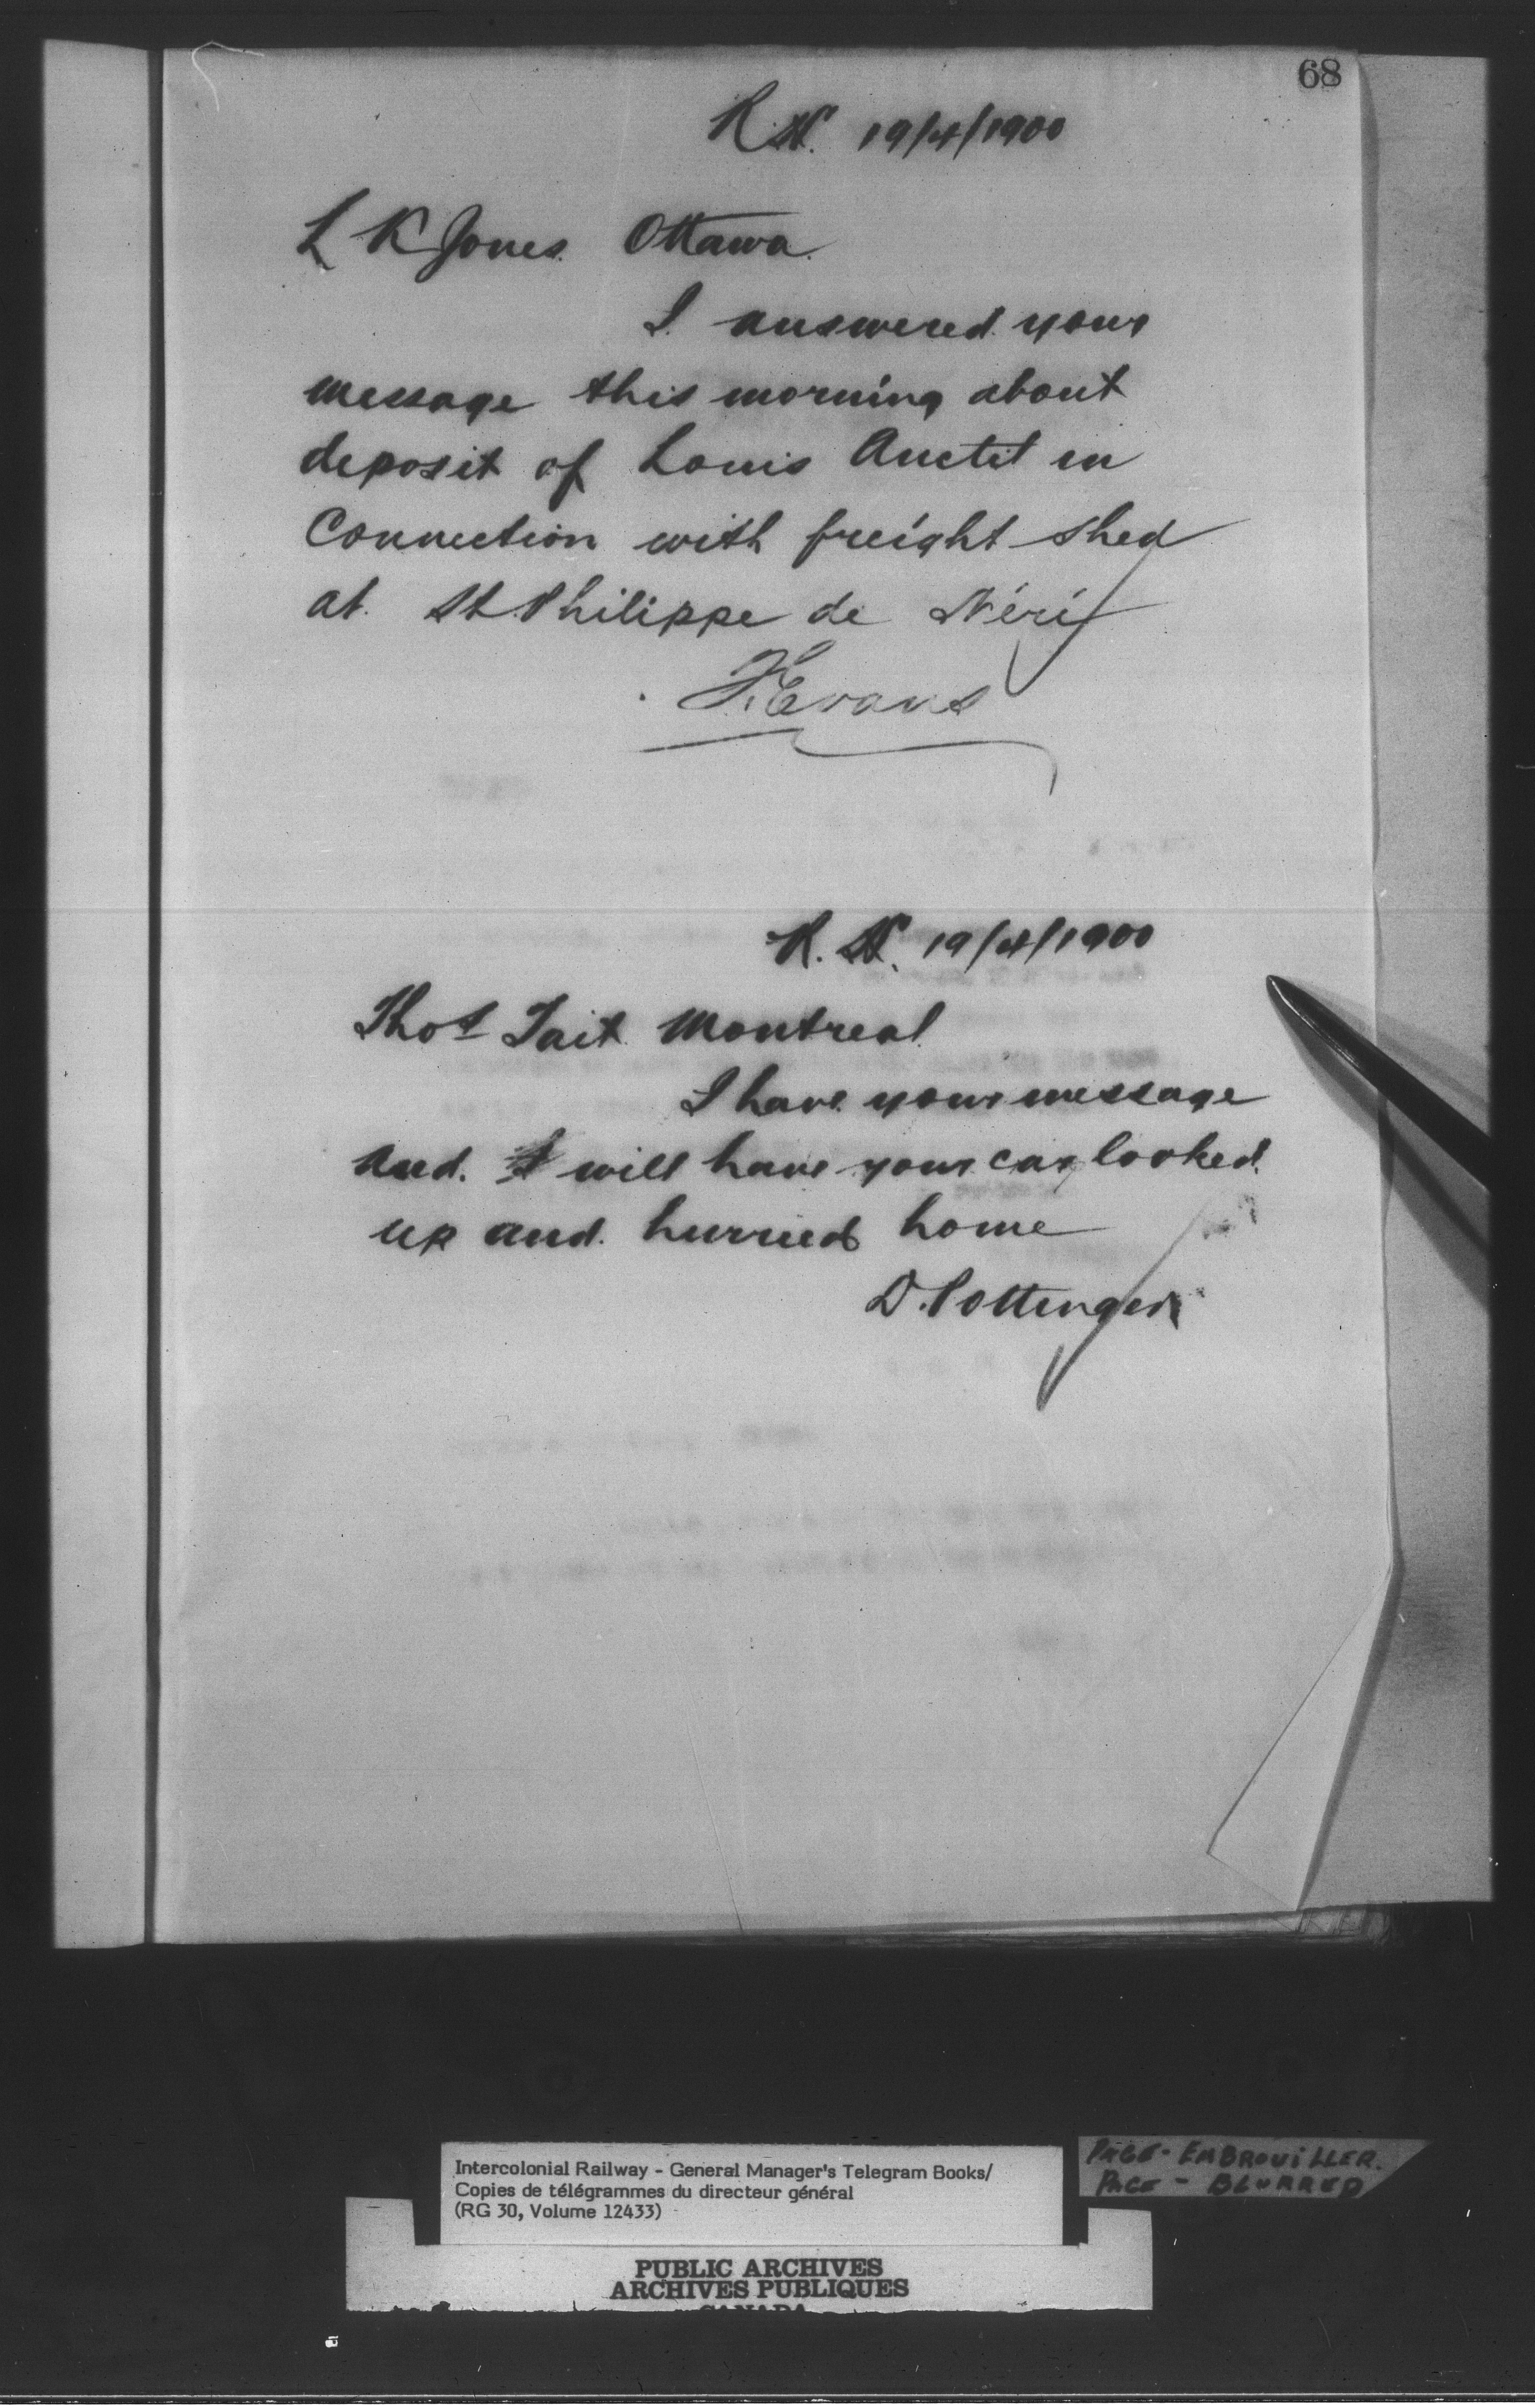 68
R.N. 19/4/1900
L K Jones. Ottawa.
I answered your
message this morning about
deposit of Louis Auctil in
Connection with freight shed
at St. Philippe de Néri
F. Evans
R. N. 19/4/1900
Thos Tait Montreal
I have your message
and. I will have your car looked
up and hurried home
D. Pottinger
Intercolonial Railway - General Manager's Telegram Books/
Copies de télégrammes du directeur général
(RG 30, Volume 12433)
PAGE - EMBROUILLER.
PAGE - BLURRED
PUBLIC ARCHIVES
ARCHIVES PUBLIQUES
CANADA